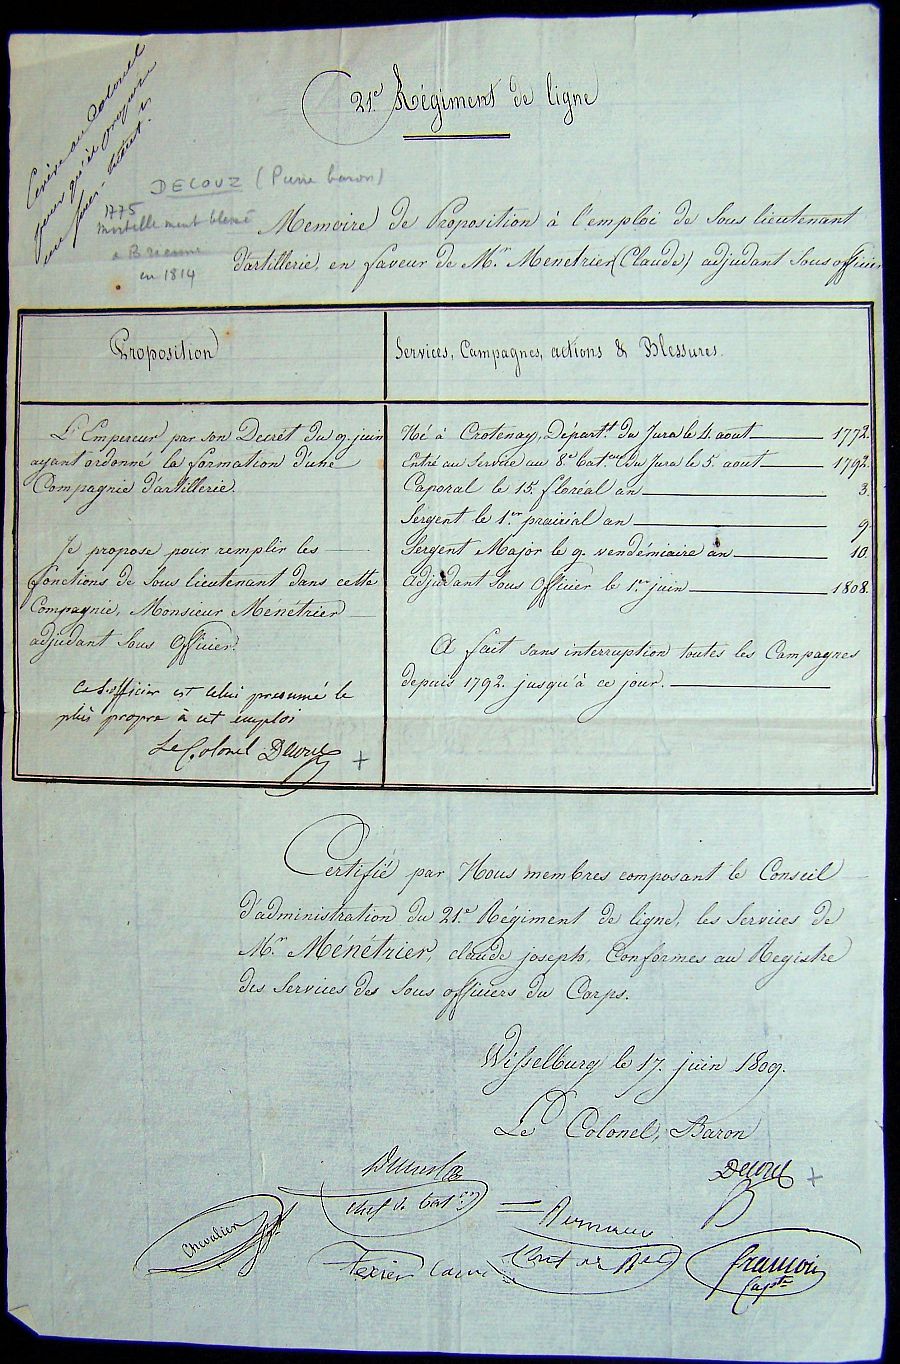 21e. Régiment de ligne
Ecrire au Colonel
pour qu'il propose
un
DECOUZ (Pierre baron)
1775
mortellement blessé
à Brienne
en 1814
Memoire de Proposition à l'emploi de Sous lieutenant
d'artillerie, en faveur de Mr. Menetrier (Claude) adjudant Sous officier
Proposition
L'Empereur par son Decrét du 9. juin
ayant ordonné la formation d'une
Compagnie d'artillerie.
Je propose pour remplir les
fonctions de Sous lieutenant dans cette
Compagnie, Monsieur Menetrier
adjudant Sous Officier.
ce S. officier est celui presumé le
plus propre à cet emploi
Le Colonel Decouz
Services, Campagnes, actions & Blessures.
Né à Crotenay, Départt. du Jura le 4. aout 1772.
Entré au Service au 8e. Bat.on du Jura le 5. aout 1792.
Caporal le 15. floréal an 3.
Sergent le 1.er prairial an 9.
Sergent Major le 9. vendémiaire an 10.
Adjudant Sous Officier le 1.er juin 1808.
A fait sans interruption toutes les Campagnes
depuis 1792. jusqu'à ce jour.
Certifié par Nous membres composant le Conseil
d'administration du 21.e Régiment de ligne, les Services de
Mr. Ménétrier, claude joseph, Conformes au Registre
des Services des Sous officiers du Corps.
Wisselburg le 17. juin 1809.
Le Colonel, Baron
Decouz
chef de bat.on
Chevalier
Texier
francois
Capt.e